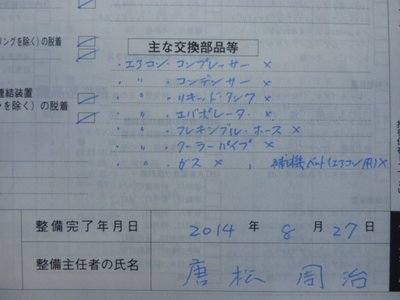 リングを除く）の脱着
主な交換部品等
・エアコン・コンプレッサー ×
・〃 コンデンサー ×
連結装置
・〃 リキッド・タンク ×
を除く）の脱着
・〃 エバポレータ ×
・〃 フレキシブル・ホース ×
・〃 クーラーパイプ ×
・〃 ガス × , 補機ベルト（エアコン用）×
整備完了年月日 2014 年 8 月 27 日
整備主任者の氏名 唐松 周治